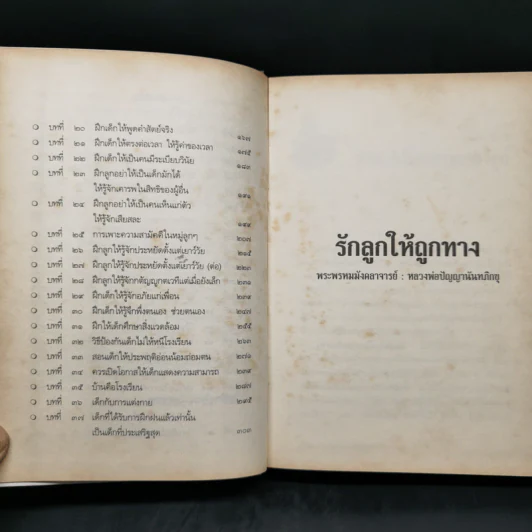 บทที่ ๒๐ ฝึกเด็กให้พูดคำสัตย์จริง ๑๖๗
บทที่ ๒๑ ฝึกเด็กให้ตรงต่อเวลา ให้รู้ค่าของเวลา ๑๗๕
บทที่ ๒๒ ฝึกเด็กให้เป็นคนมีระเบียบวินัย ๑๘๓
บทที่ ๒๓ ฝึกลูกอย่าให้เป็นเด็กมักได้
ให้รู้จักเคารพในสิทธิของผู้อื่น ๑๙๑
บทที่ ๒๔ ฝึกลูกอย่าให้เป็นคนเห็นแก่ตัว
ให้รู้จักเสียสละ
บทที่ ๒๕ การเพาะความสามัคคีในหมู่ลูกๆ ๒๐๗
บทที่ ๒๖ ฝึกลูกให้รู้จักประหยัดตั้งแต่เยาว์วัย
บทที่ ๒๗ ฝึกลูกให้รู้จักประหยัดตั้งแต่เยาว์วัย (ต่อ) ๒๒๓
บทที่ ๒๘ ฝึกลูกให้รู้จักกตัญญูกตเวทีแต่เมื่อยังเล็ก ๒๓๑
บทที่ ๒๙ ฝึกเด็กให้รู้จักอภัยแก่เพื่อน ๒๓๙
บทที่ ๓๐ ฝึกเด็กให้รู้จักพึ่งตนเอง ช่วยตนเอง ๒๔๗
บทที่ ๓๑ ฝึกให้เด็กศึกษาสิ่งแวดล้อม ๒๕๕
บทที่ ๓๒ วิธีป้องกันเด็กไม่ให้หนีโรงเรียน ๒๖๓
บทที่ ๓๓ สอนเด็กให้ประพฤติอ่อนน้อมถ่อมตน ๒๗๑
บทที่ ๓๔ ควรเปิดโอกาสให้เด็กแสดงความสามารถ
บทที่ ๓๕ บ้านคือโรงเรียน ๒๘๗
บทที่ ๓๖ เด็กกับการแต่งกาย ๒๙๕
บทที่ ๓๗ เด็กที่ได้รับการฝึกฝนแล้วเท่านั้น
เป็นเด็กที่ประเสริฐสุด ๓๐๓
รักลูกให้ถูกทาง
พระพรหมมังคลาจารย์ : หลวงพ่อปัญญานันทภิกขุ